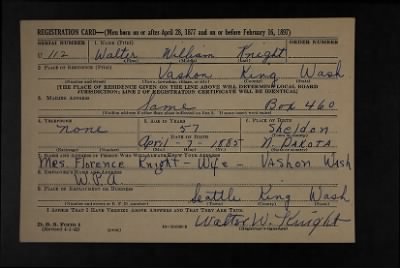 REGISTRATION CARD—(Men born on or after April 28, 1877 and on or before February 16, 1897)
SERIAL NUMBER 1. NAME (Print) ORDER NUMBER
U 112 Walter William Knight
(First) (Middle) (Last)
2. PLACE OF RESIDENCE (Print)
Vashon King Wash
[THE PLACE OF RESIDENCE GIVEN ON THE LINE ABOVE WILL DETERMINE LOCAL BOARD
JURISDICTION; LINE 2 OF REGISTRATION CERTIFICATE WILL BE IDENTICAL]
3. MAILING ADDRESS
Same Box 460
4. TELEPHONE 5. AGE IN YEARS 6. PLACE OF BIRTH
none 57 Sheldon
DATE OF BIRTH
April - 7 - 1885 N DAKOTA
7. NAME AND ADDRESS OF PERSON WHO WILL ALWAYS KNOW YOUR ADDRESS
Mrs. Florence Knight - Wife - Vashon Wash
8. EMPLOYER'S NAME AND ADDRESS
W.P.A.
9. PLACE OF EMPLOYMENT OR BUSINESS
Seattle King Wash
I AFFIRM THAT I HAVE VERIFIED ABOVE ANSWERS AND THAT THEY ARE TRUE.
D. S. S. Form 1 Walter W. Knight